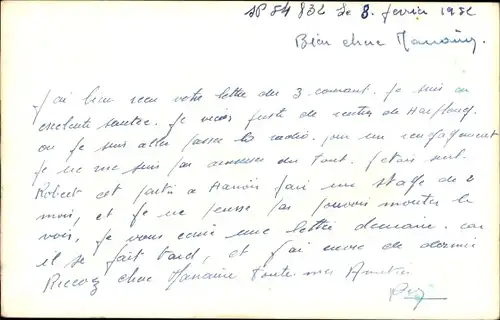 SP 54 832 le 8. fevrier 1952
Bien chère Marraine,
J'ai bien reçu votre lettre du 3. courant. je suis en
excelente santée. je viens juste de rentrer de Haiphong.
ou je suis aller passer la radio. pour un rengagement
je ne me suis pas amuser du tout. j'étais seul.
Robert est partis a Hanoi faire un stage de 2
mois, et je ne pense pas pouvoir monter le
voir, je vous écrie une lettre demain. car
il se fait tard, et j'ai envie de dormir
Recevez chère Marraine toute mes Amitiés